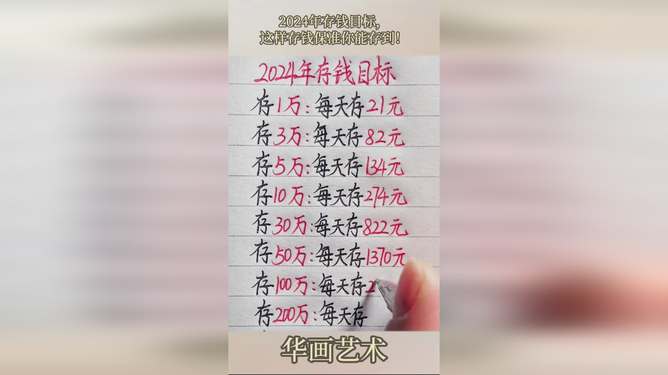 2024年存钱目标,
这样存钱保准你能存到!
2024年存钱目标
存1万:每天存21元
存3万:每天存82元
存5万:每天存134元
存10万:每天存274元
存30万:每天存822元
存50万:每天存1370元
存100万:每天存2
存200万:每天存
华画艺术